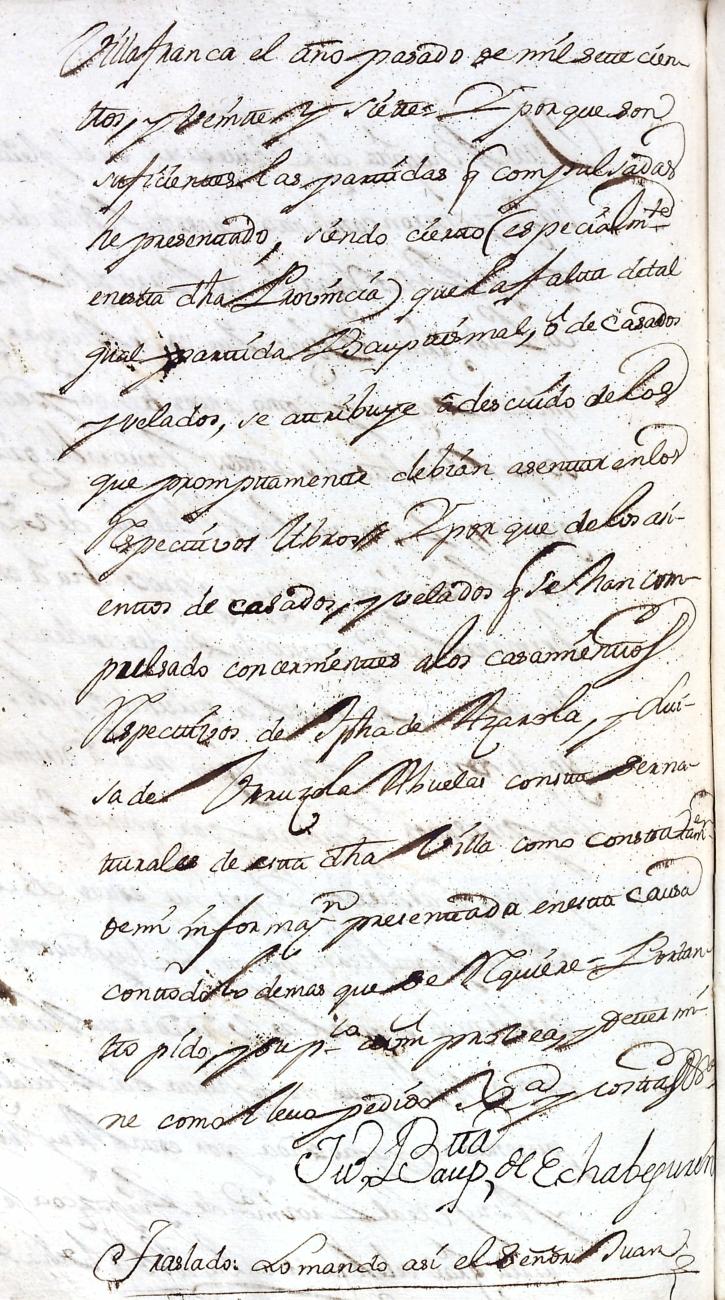 Villafranca el año pasado de mil sete cien-
ttos, y veintte y siette= Y porque son
suficientes las parttidas q compulsadas
he presentado, siendo cierto (especialmte
en estta dha Provincia) que la falta de tal
qual parttida Bauptismal, ó de Casados
y velados, se attribuye á descuido de los
que promptamente debian asenttar en los
Respectivos libros= Y por que de los asi-
enttos de casados, y velados q se han com-
pulsado concernientes a los casamientos
Respecttivos de Jpha de Azarola, y Lui-
sa de Vrruzola Abuelas constta ser na-
tturales de estta dha Villa como constta tamen
de mi informan presenttada en estta causa
con ttodo lo demas que se Requiere= Por tan-
tto pido, y supco a Vm provea, y determi-
ne como llevo pedido Jusa y costtas
Jun Bauptta de Echabeguren
Traslado: Lo mando asi el Señor Juan